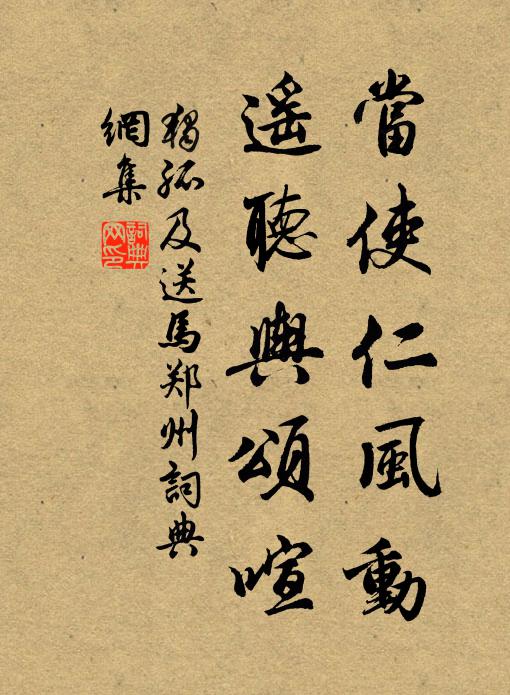 當使仁風動
遥聽輿頌喧
獨孤及送馬郑州詞典
網集
詞典
网印